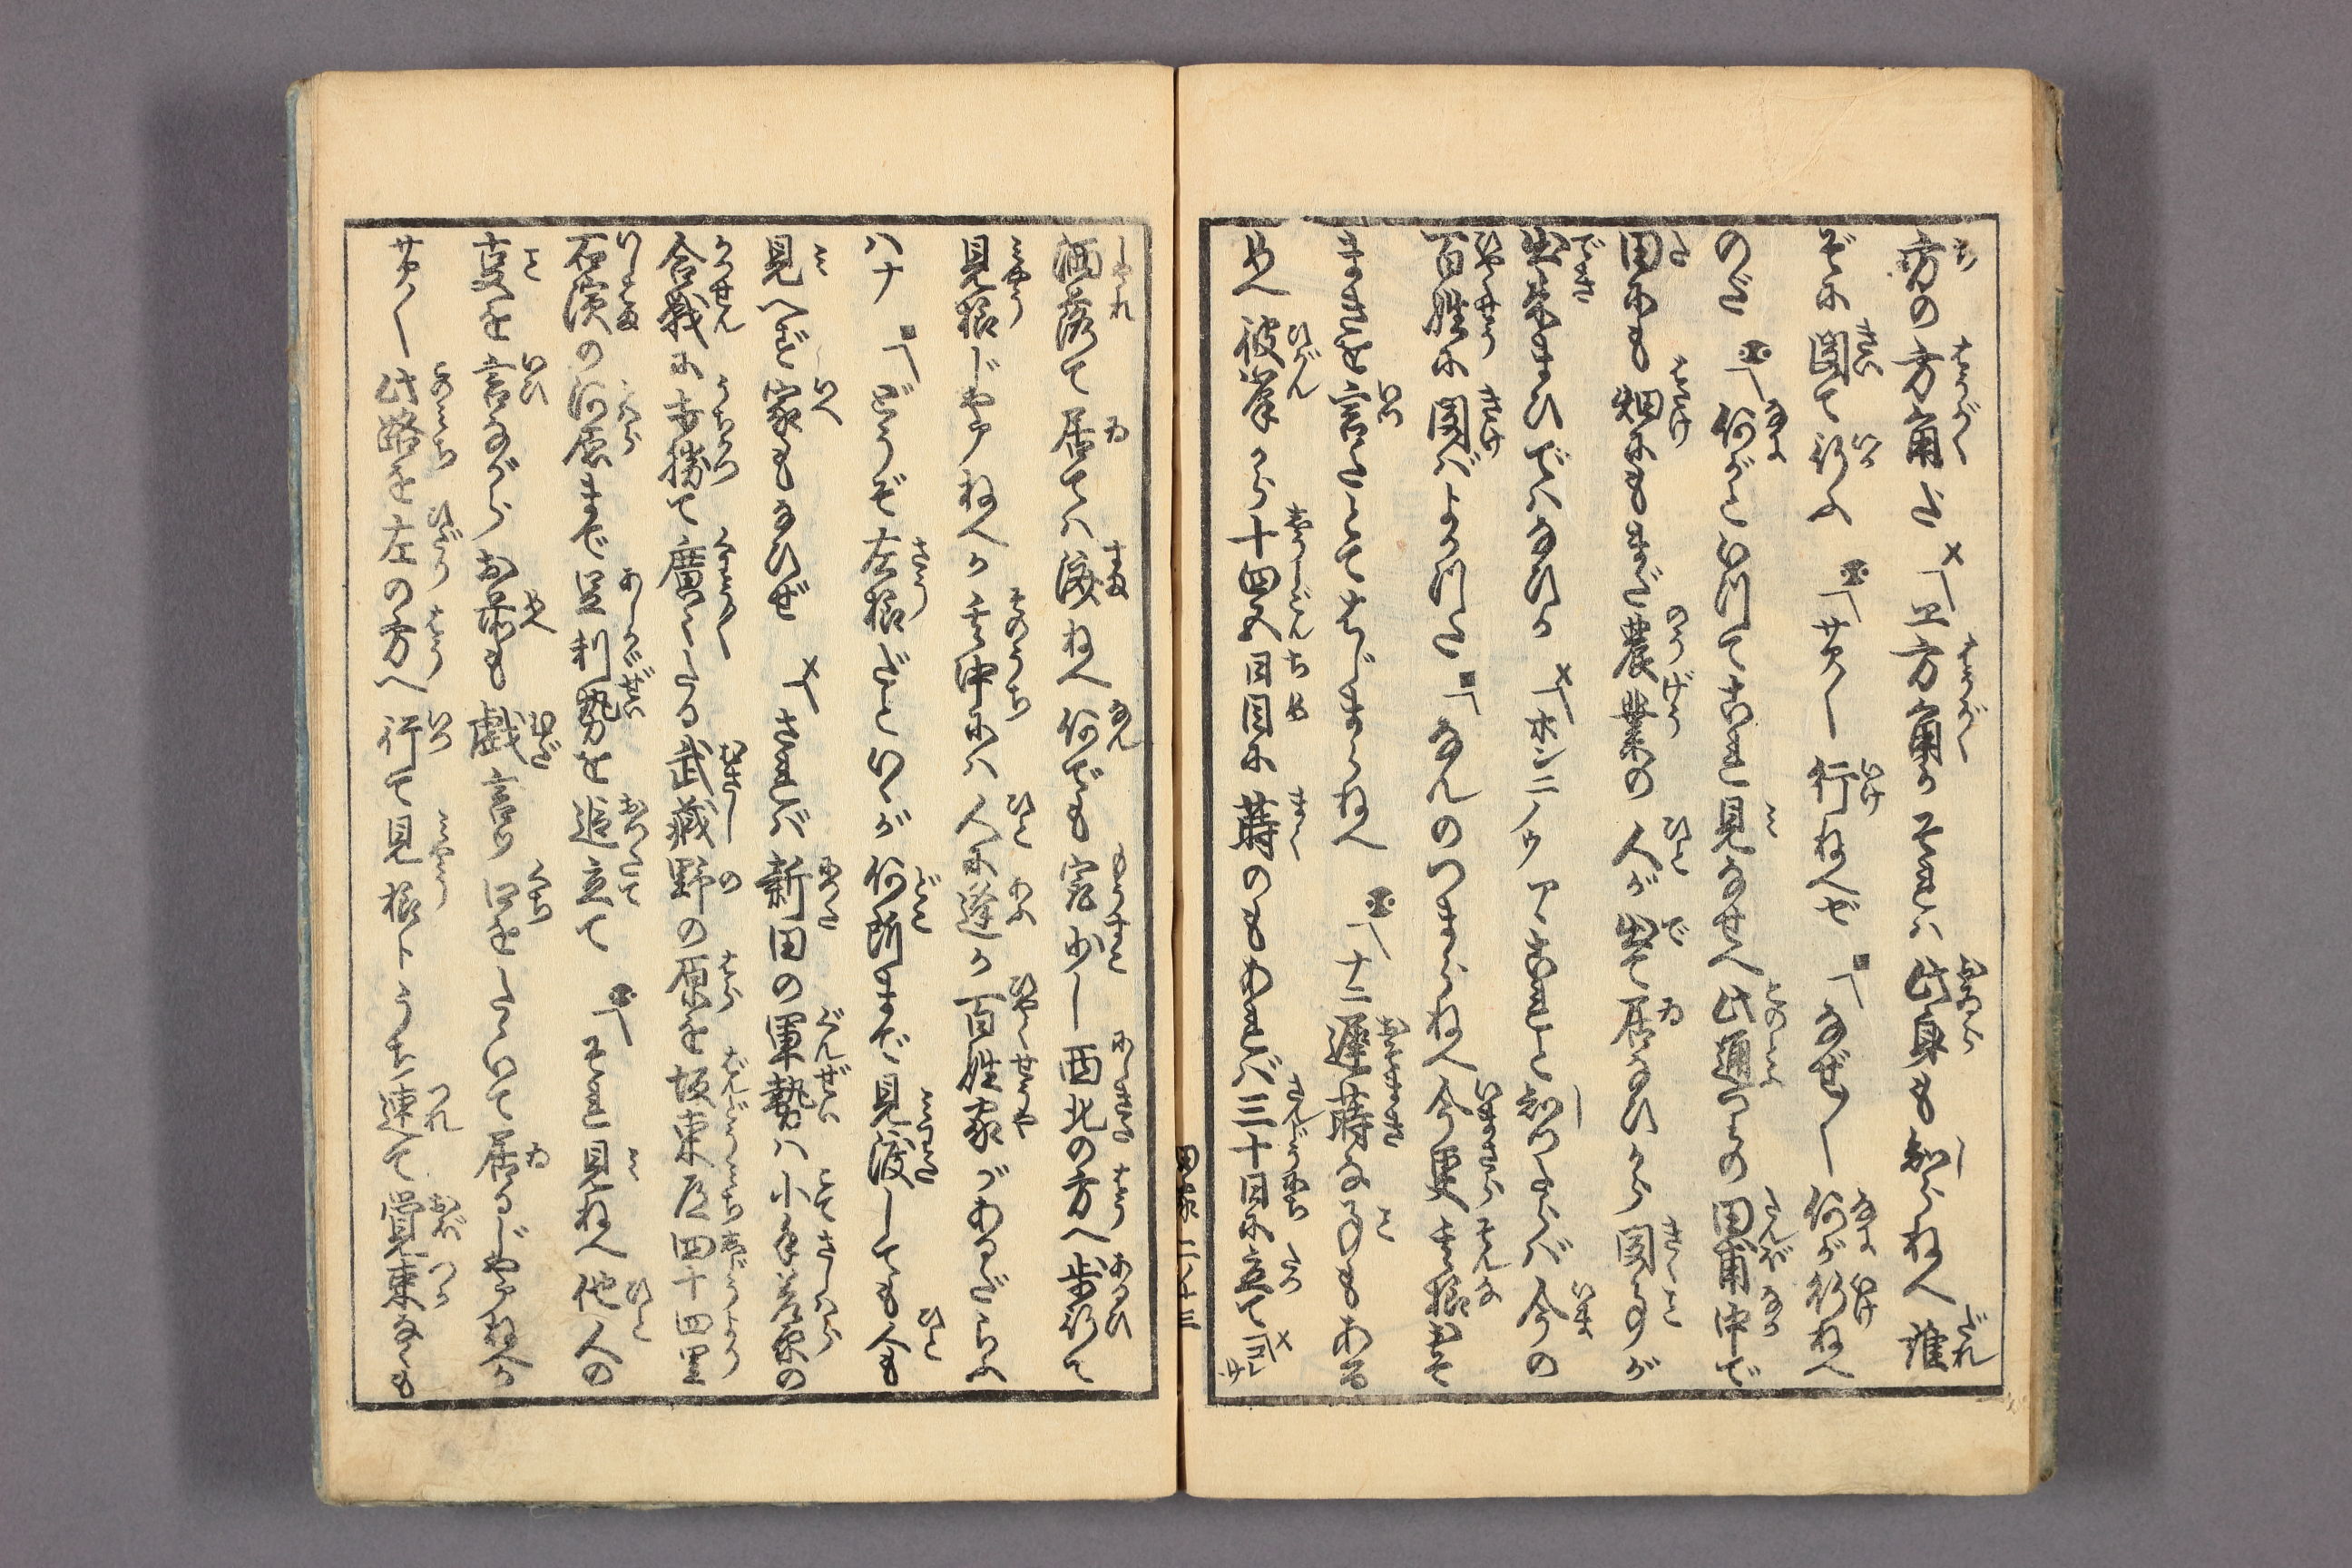 方の方角だ ×「エ方角かそれハ此身も知らねへ誰
ぞに聞て行ふ 「サア〳〵行ねへぞ ■「なぜ〳〵何が行ねへ
のだ 「何がといつて古れ見なせへ此通りの田甫中で
田にも畑にもまだ農業の人が出て居ないから聞事が
出来ないでハないか ×「ホンニノウア、それと知つたらバ今の
百姓に聞バよかつた ■「なんのつまらねへ今更其様な
まぬけを言だしてもはじまらねへ 「ナニ遅蒔な事もある
めへ彼岸から十四五日目に蒔のもあれバ三十日に立て ×「コレサ
洒落て居てハ済ねへ何でも最少し西北の方へ歩行て
見様じやアねへか其中にハ人に逢か百姓家があるだらふ
ハナ ■「どうぞ左様だといゝが何所まで見渡しても人も
見へず家もないぜ ×「されバ新田の軍勢ハ小手差原の
合戦に打勝て広々したる武蔵野の原を坂東道四十四里
石濱の河原まで足利勢を追立て 「それ見ねへ他人の
事を言ながらお前も戯言口をたゝいて居るじやアねへか
サア〳〵此路を左の方へ行て見様トうち連て覚束なくも
四家 二ノ十三